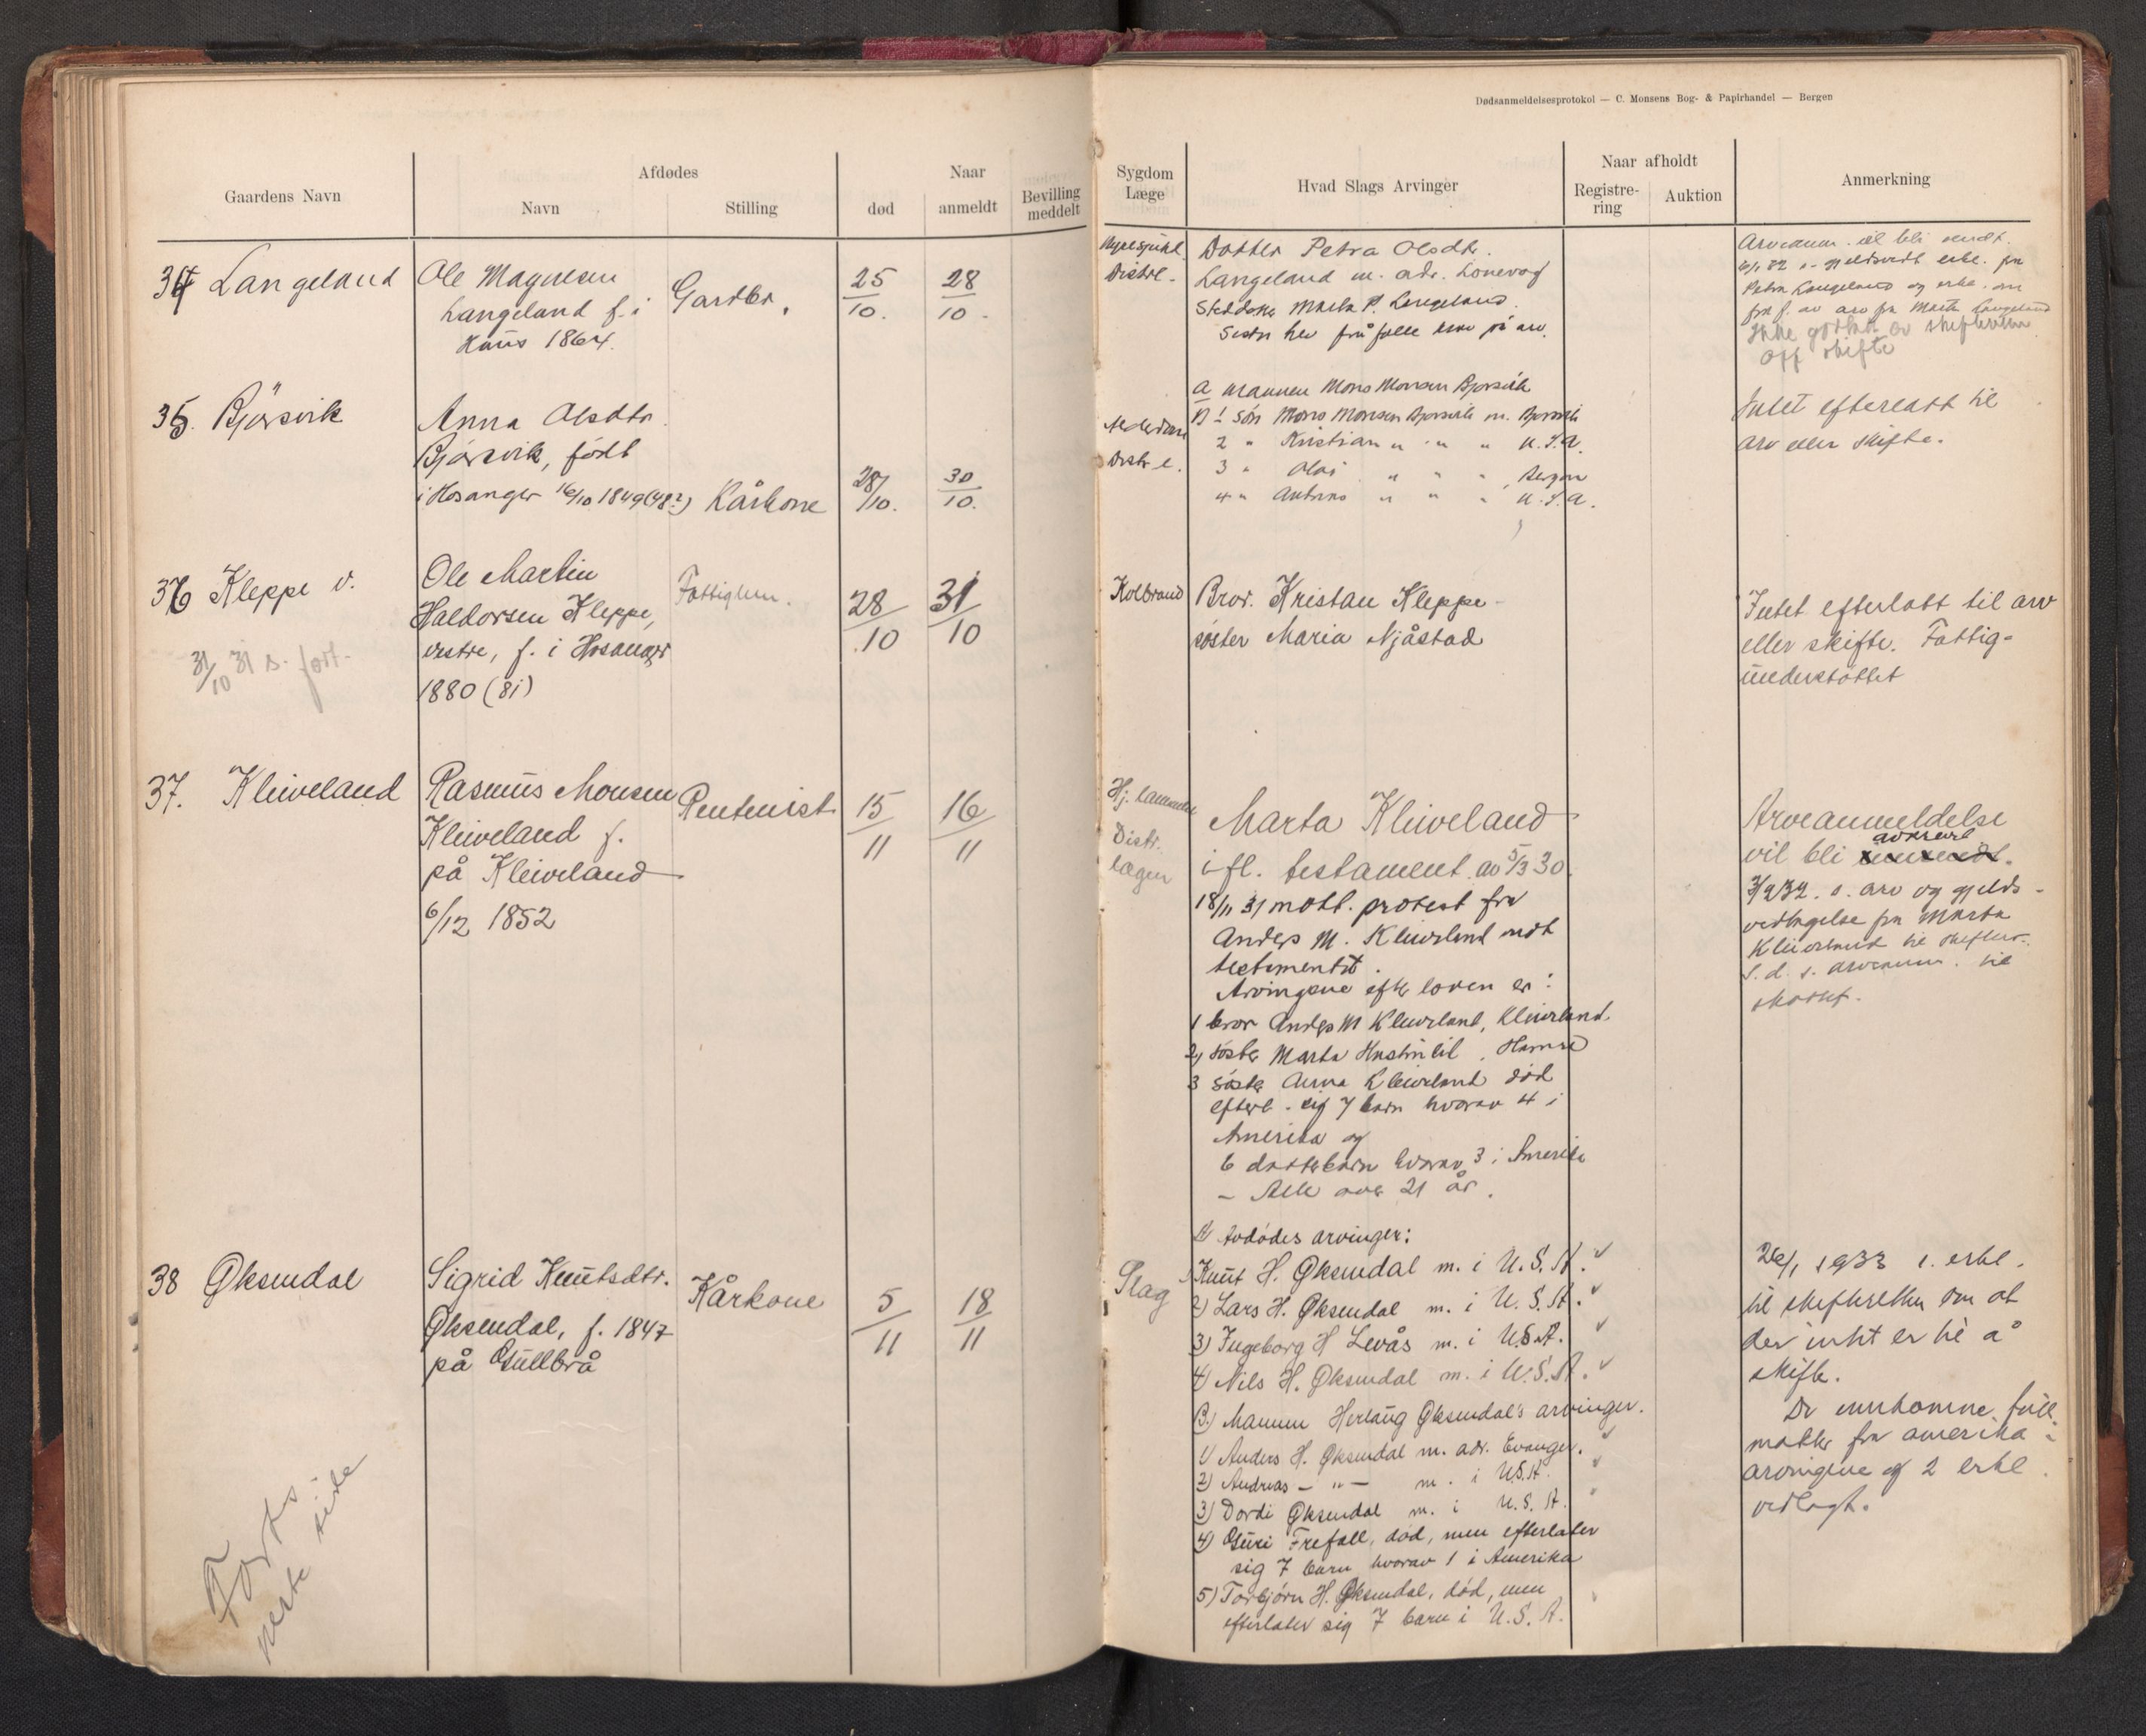 Dødsanmeldelsesprotokol — C. Monsens Bog- & Papirhandel — Bergen
Gaardens Navn
Afdødes
Navn
Stilling
Naar
død
anmeldt
Bevilling meddelt
Sygdom
Læge
Hvad Slags Arvinger
Naar afholdt
Registrering
Auktion
Anmerkning
34 Langeland
Ole Magnesen
Langeland f. i
Haus 1864.
Gardbr.
25/10.
28/10.
Distrl.
Datter Petra Olsdtr.
Langeland m. adr. Lonevog
Marta P. Langeland.
på arv.
Arveanm. vil bli sendt.
Petra Langeland og erkl. om
av arv fra Marta Langeland
Ikke godkj. av skifteretten
Off skifte
35. Bjørsvik
Anna Olsdtr.
Bjørsvik, født
i Hosanger 16/10 1849 (48?)
Kårkone
28/10.
30/10.
Distr.l.
A mannen Mons Monsen Bjørsvik
B 1 Søn Mons Monsen Bjørsvik m. Bjørsvik
2 " Kristian " " " U.S.A.
3 " Olai " " " Bergen
4 " " " " U.S.A.
Intet efterlatt til
arv eller skifte.
36 Kleppe v.
31/10 31 s. fort.
Ole Martin
Haldorsen Kleppe,
vestre, f. i Hosanger
1880 (81)
Fattiglem.
28/10
31/10
Koldbrand
Bror. Kristan Kleppe
søster Maria Njåstad
Intet efterlatt til arv
eller skifte. Fattig-
understøttet
37. Kleiveland
Rasmus Monsen
Kleiveland f.
på Kleiveland
6/12 1852
Rentenist
15/11
16/11
Distr.
lægen
Marta Kleiveland
ifl. testament av 5/3 30.
18/11 31 mott. protest fra
Anders M. Kleiveland mot
testamentet.
Arvingene efter loven er:
1 bror Anders M Kleiveland, Kleiveland.
2) søster Marta
3 søster Anna Kleiveland død
efterl. sig 7 barn hvorav 4 i
Amerika og
6 datterbarn hvorav 3 i Amerika
- Alle over 21 år.
Arveanmeldelse
vil bli
s. arv og gjelds-
vedtagelse fra Marta
Kleiveland til skifter.
S. d. s. arveanm. til
38 Øksendal
Sigrid Knutsdtr.
Øksendal, f. 1847
på Gullbrå
Kårkone
5/11
18/11
Slag
A) Avdødes arvinger:
1) Knut H. Øksendal m. i U.S.A.
2) Lars H. Øksendal m. i U.S.A.
3) Ingeborg H Levås m. i U.S.A.
4) Nils H. Øksendal m. i U.S.A.
B.) Mannen Herlaug Øksendal's arvinger.
1) Anders H. Øksendal m. adr. Evanger.
2) Andreas — " — m. i U.S.A.
3) Dordi Øksendal m. i U.S.A.
4) Guri Trefall, død, men efterlater
sig 7 barn hvorav 1 i Amerika
5) Torbjørn H. Øksendal, død, men
efterlater sig 7 barn i U.S.A.
26/1 1933 s. erkl.
til skifteretten om at
der intet er til å
skifte.
De innkomne full-
makter fra amerika-
arvingene og 2 erkl.
vedlagt.
Forts
neste side